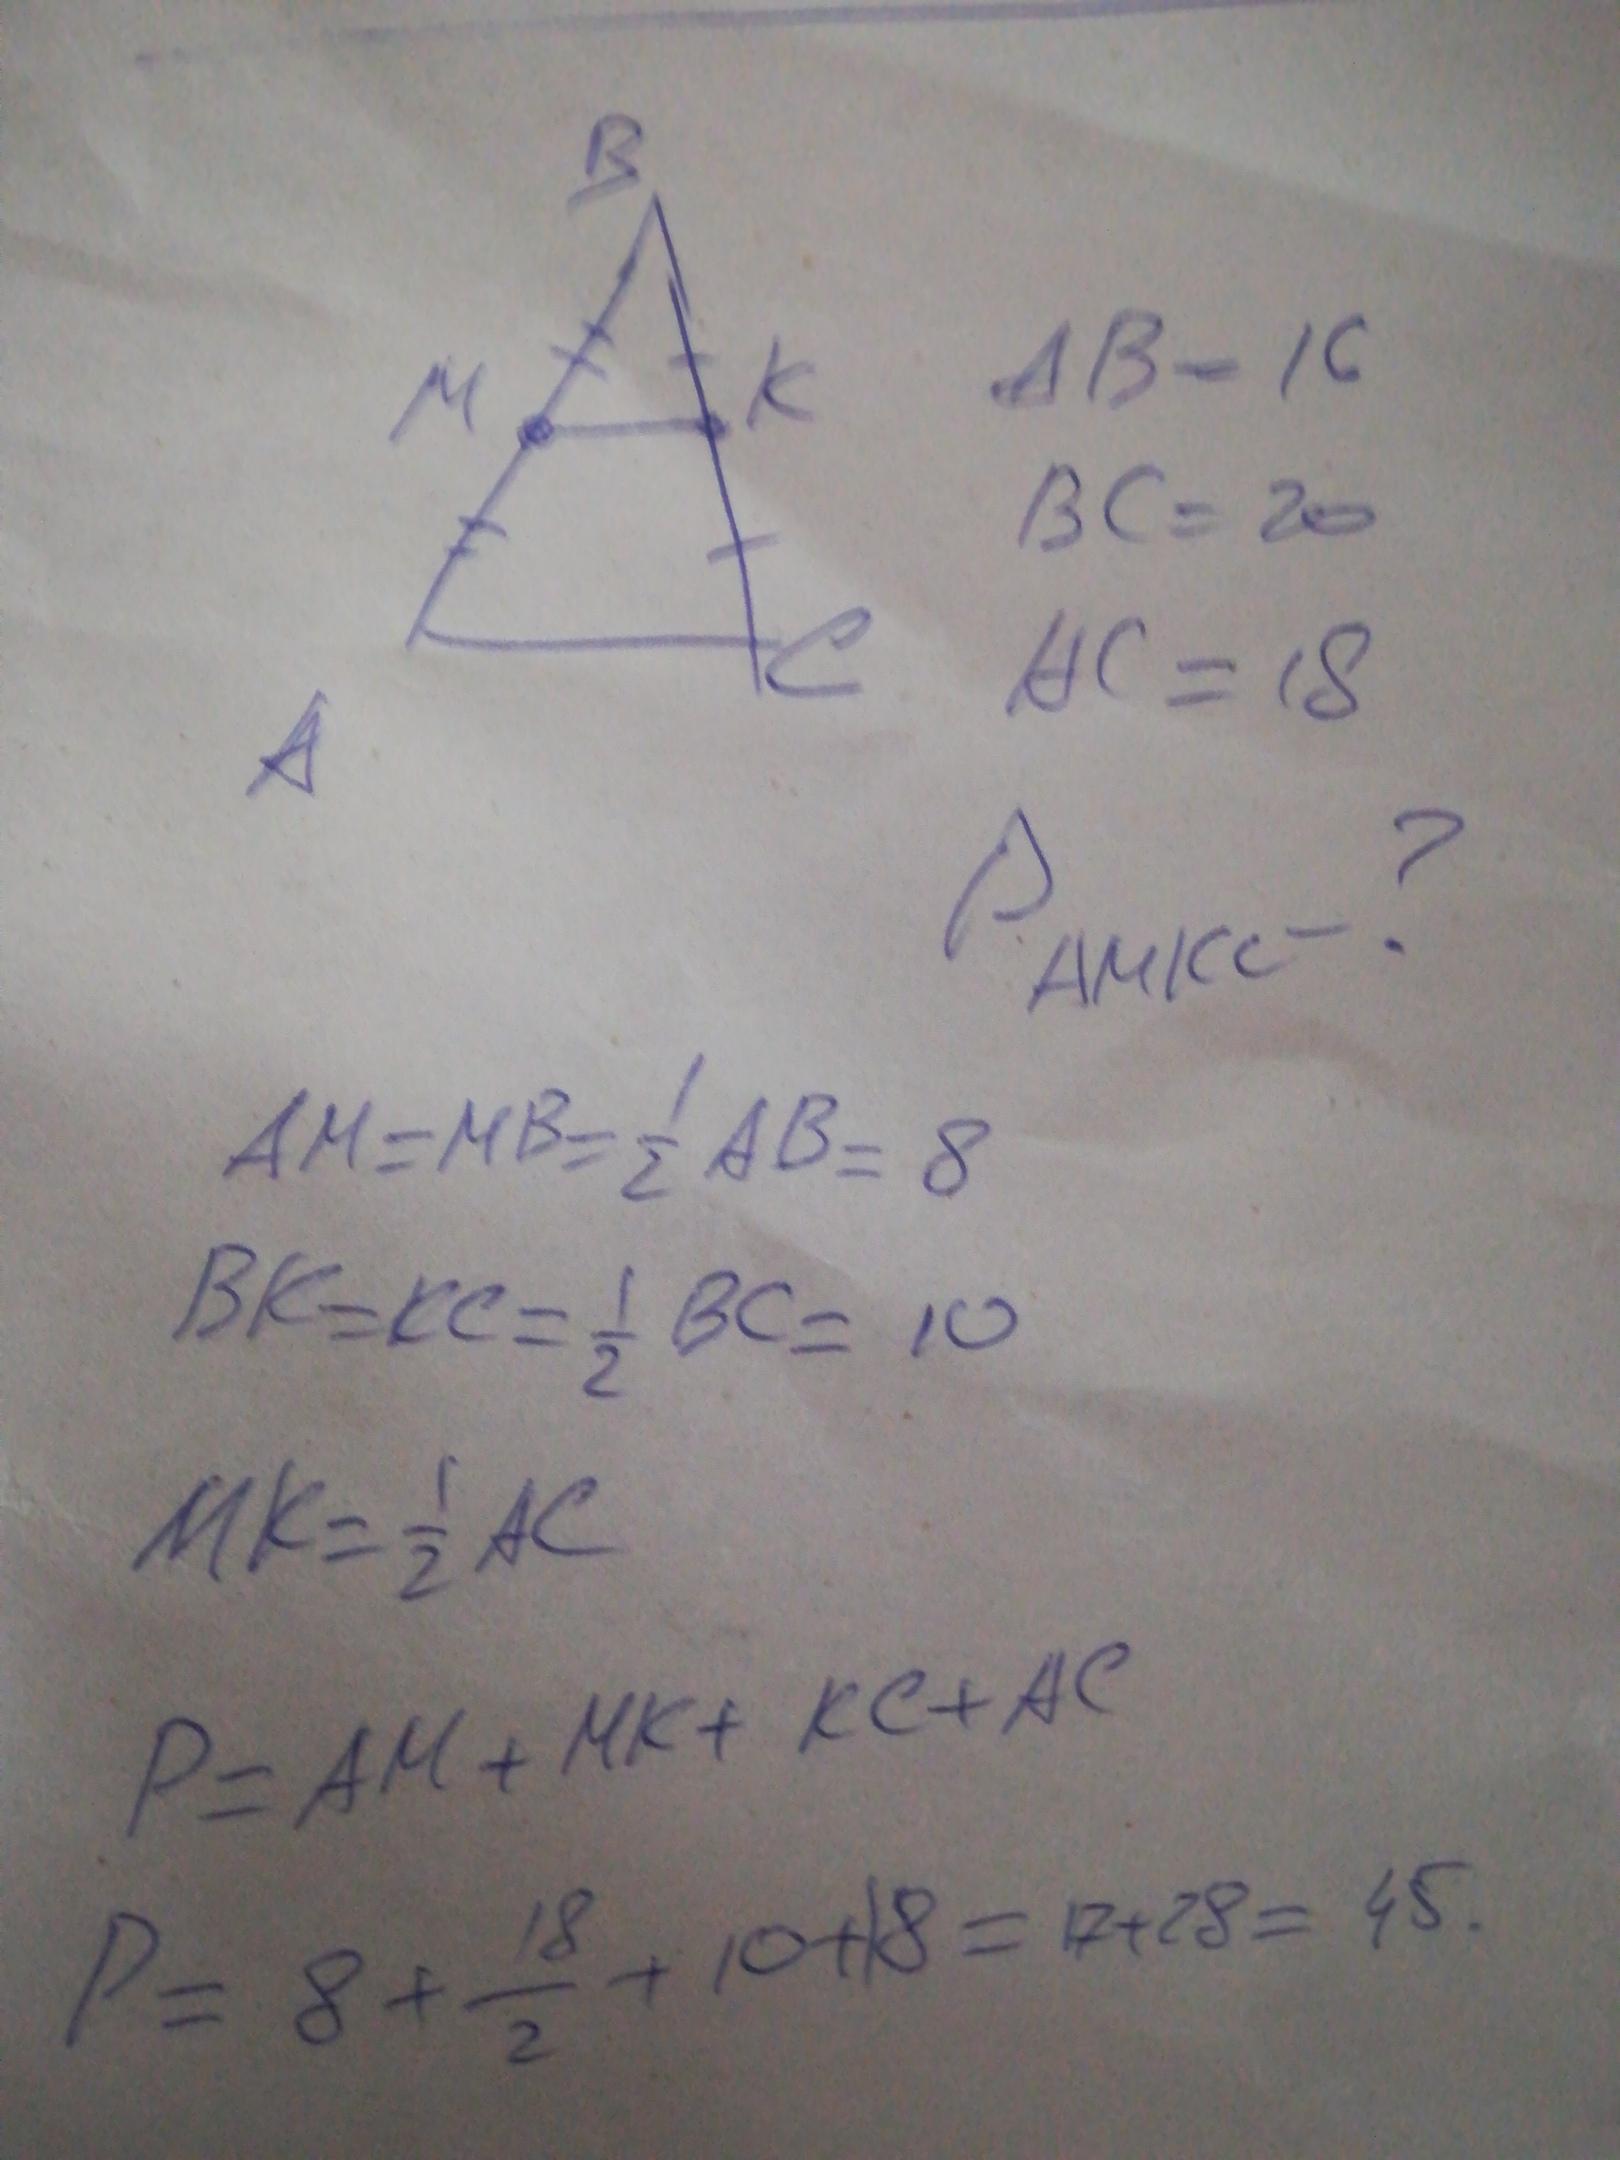 B
M
K
A
C
AB - 16
BC = 20
AC = 18
P AMKC - ?
AM = MB = 1/2 AB = 8
BK = KC = 1/2 BC = 10
MK = 1/2 AC
P = AM + MK + KC + AC
P = 8 + 18/2 + 10 + 18 = 17 + 28 = 45.